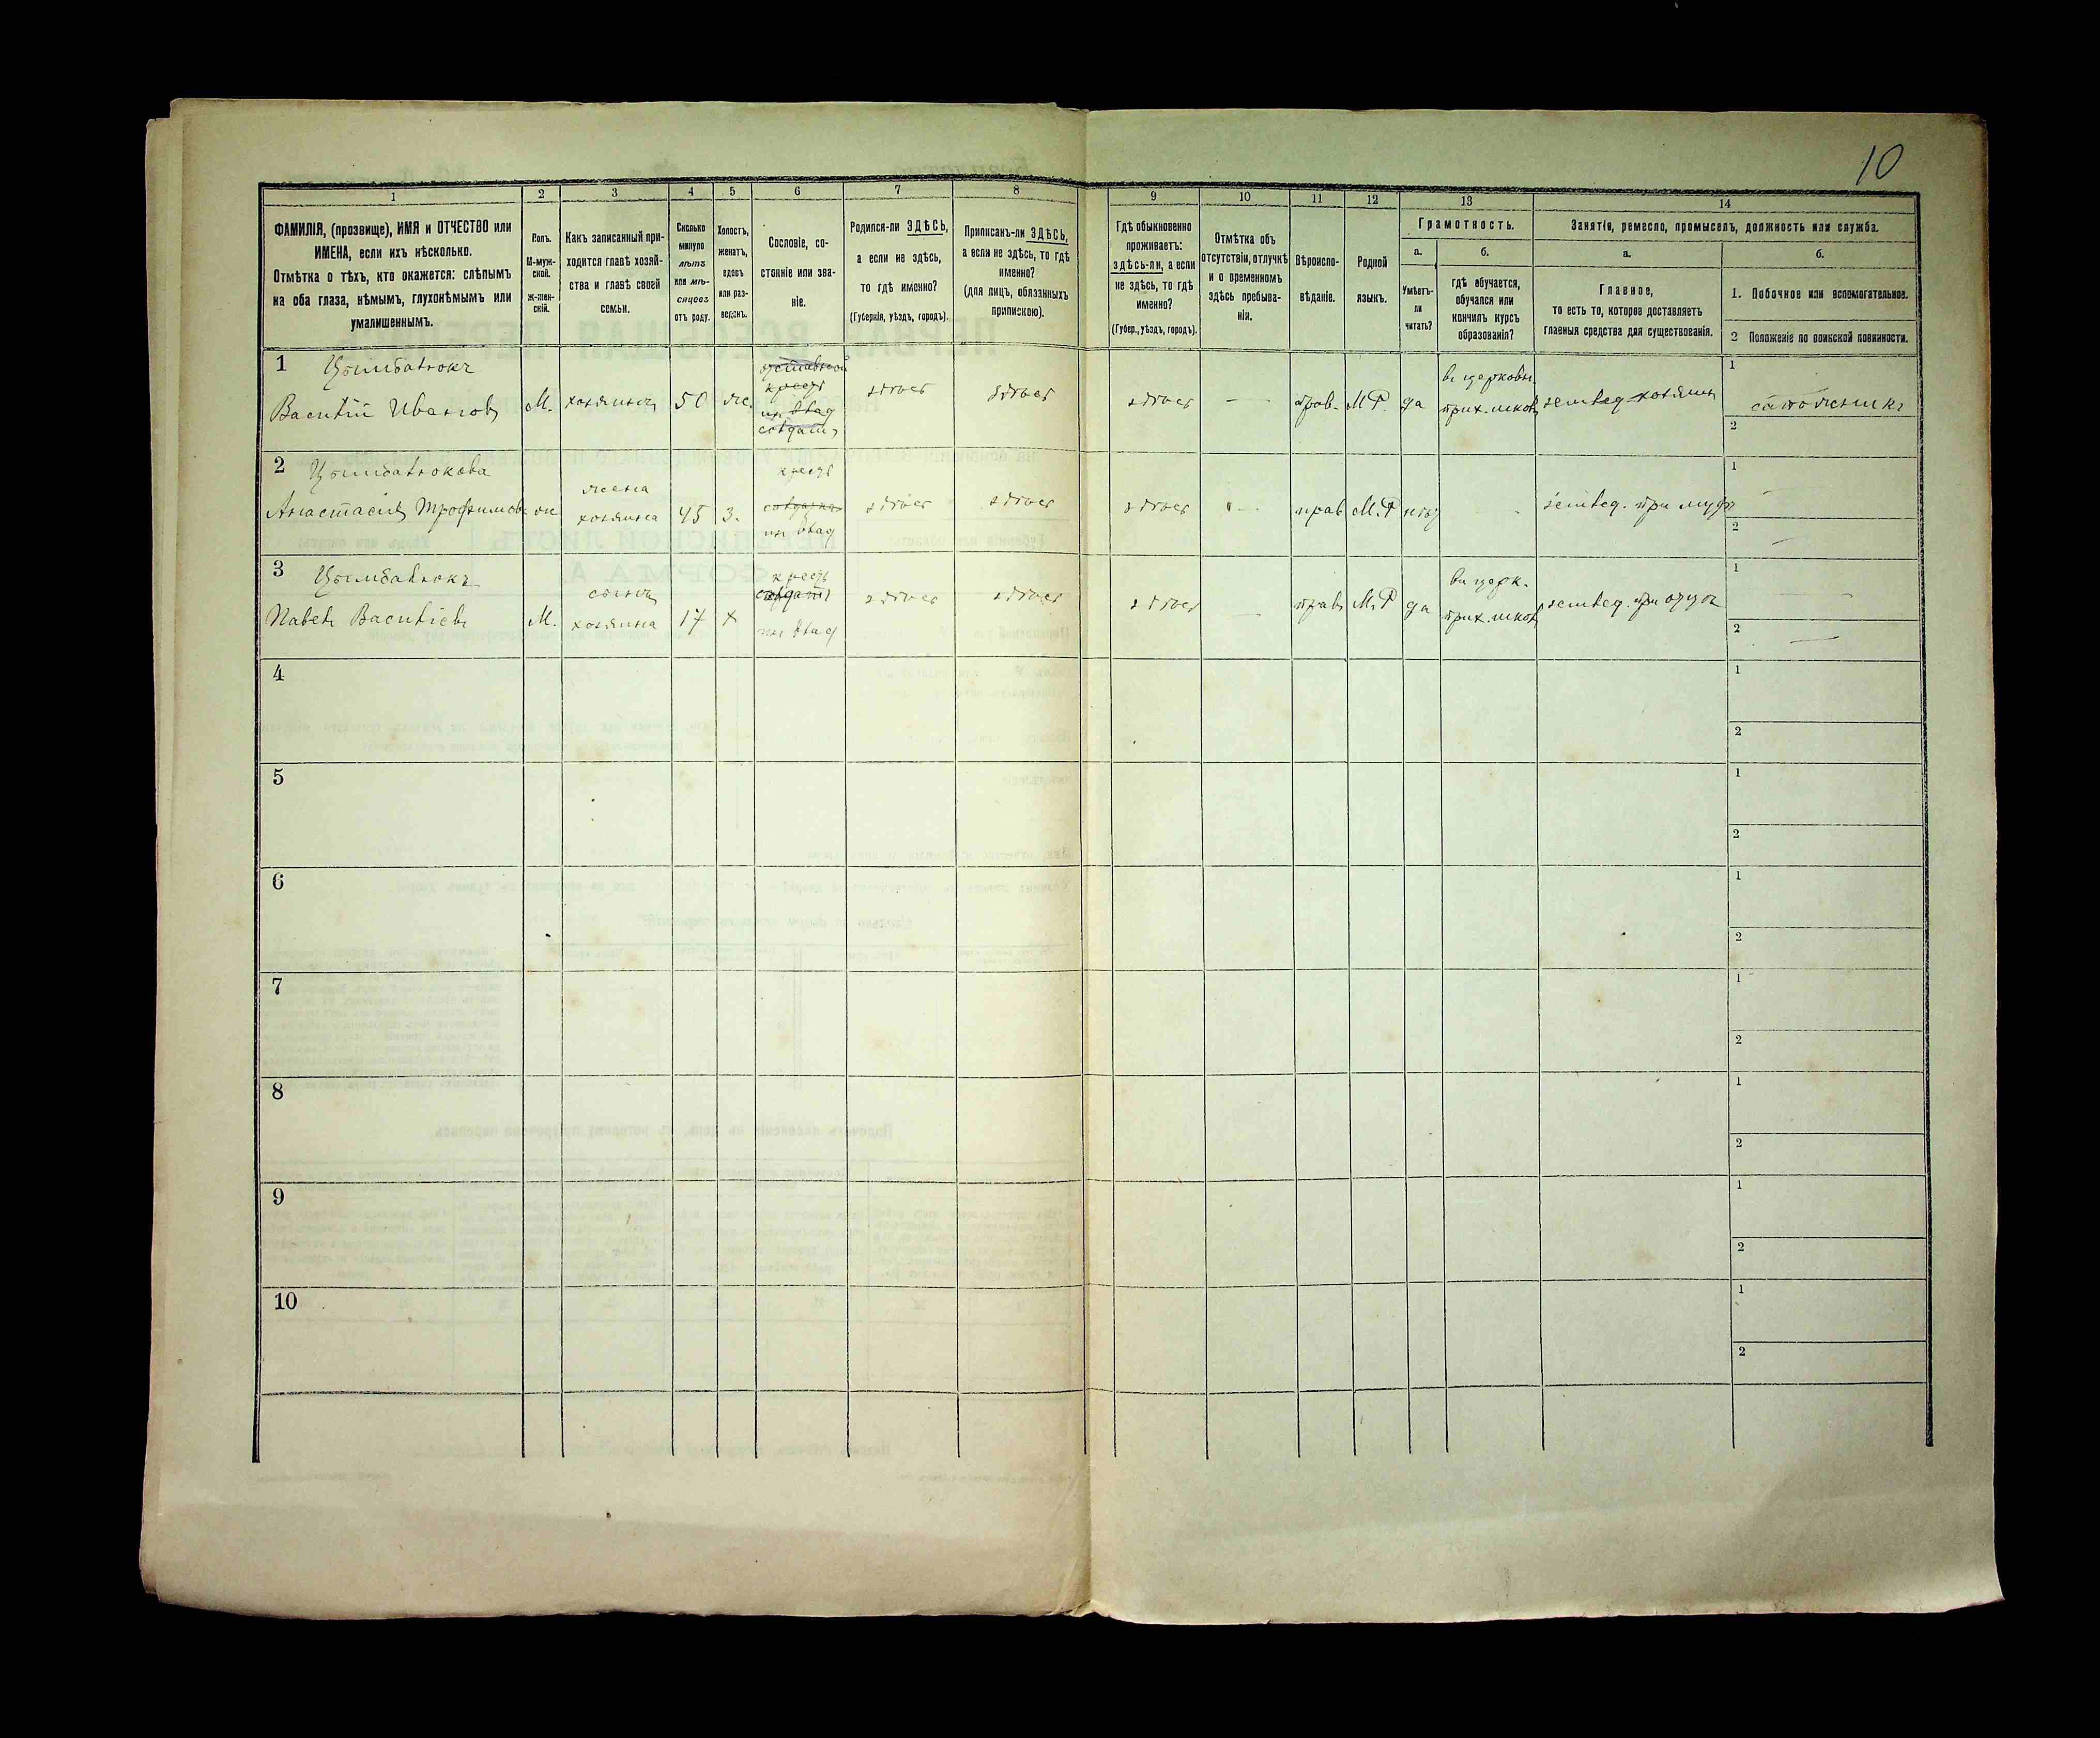 10
1 2 3 4 5 6 7 8 9 10 11 12 13 14
ФАМИЛІЯ, (прозвище), ИМЯ и ОТЧЕСТВО или
ИМЕНА, если ихъ нѣсколько.
Отмѣтка о тѣхъ, кто окажется: слѣпымъ
на оба глаза, нѣмымъ, глухонѣмымъ или
умалишеннымъ.
Полъ.
М-муж-
ской.
Ж-жен-
скій.
Какъ записанный при-
ходится главѣ хозяй-
ства и главѣ своей
семьи.
Сколько
минуло
лѣтъ
или мѣ-
сяцевъ
отъ роду.
Холостъ,
женатъ,
вдовъ
или раз-
веденъ.
Сословіе, со-
стояніе или зва-
ніе.
Родился-ли ЗДѢСЬ,
а если не здѣсь,
то гдѣ именно?
(Губернія, уѣздъ, городъ).
Приписанъ-ли ЗДѢСЬ,
а если не здѣсь, то гдѣ
именно?
(для лицъ, обязанныхъ
припискою).
Гдѣ обыкновенно
проживаетъ:
здѣсь-ли, а если
не здѣсь, то гдѣ
именно?
(Губер., уѣздъ, городъ).
Отмѣтка объ
отсутствіи, отлучкѣ
и о временномъ
здѣсь пребыва-
ніи.
Вѣроиспо-
вѣданіе.
Родной
языкъ.
Грамотность.
а.
Умѣетъ-
ли
читать?
б.
гдѣ обучается,
обучался или
кончилъ курсъ
образованія?
Занятіе, ремесло, промыселъ, должность или служба.
а.
Главное,
то есть то, которое доставляетъ
главныя средства для существованія.
б.
1. Побочное или вспомогательное.
2 Положеніе по воинской повинности.
1 Цымбалюкъ
Василій Ивановъ
М.
хозяинъ
50
же.
отставной
крест
из влад
солдатъ
здѣсь
здѣсь
здѣсь
—
прав.
М.Р.
да
въ церковн.
прих. школ
землед. хозяинъ
1 —
сапожникъ
2
2 Цымбалюкова
Анастасія Трофимов
ж
жена
хозяина
45
З.
крест
солдатка
из влад
здѣсь
здѣсь
здѣсь
—
прав
М.Р
нѣтъ
землед. при мужѣ
1 —
2 —
3 Цымбалюкъ
Павелъ Васильевъ
М.
сынъ
хозяина
17
х
крест
солдатъ
из влад
здѣсь
здѣсь
здѣсь
—
прав
М.Р
да
въ церк.
прих. школ
землед. при отцѣ
1 —
2 —
4
1
2
5
1
2
6
1
2
7
1
2
8
1
2
9
1
2
10
1
2